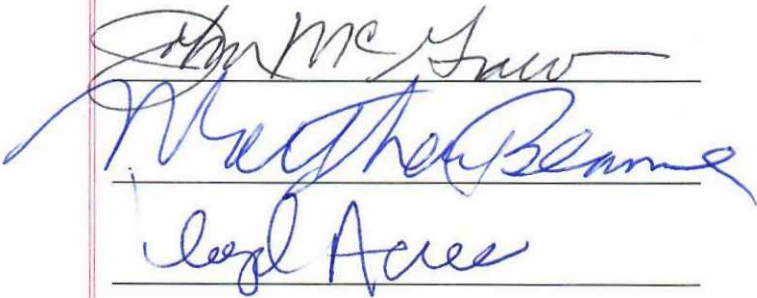 John McGraw
Martha Beanne
Lloyd Acree